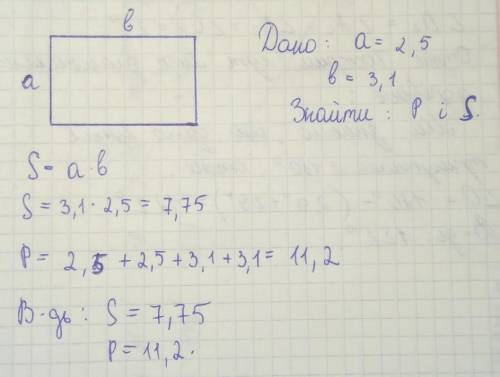 в
а
Дано: а = 2,5
в = 3,1
Знайти: Р і S.
S = а·в
S = 3,1 · 2,5 = 7,75
Р = 2,5 + 2,5 + 3,1 + 3,1 = 11,2
В-дь: S = 7,75
Р = 11,2.